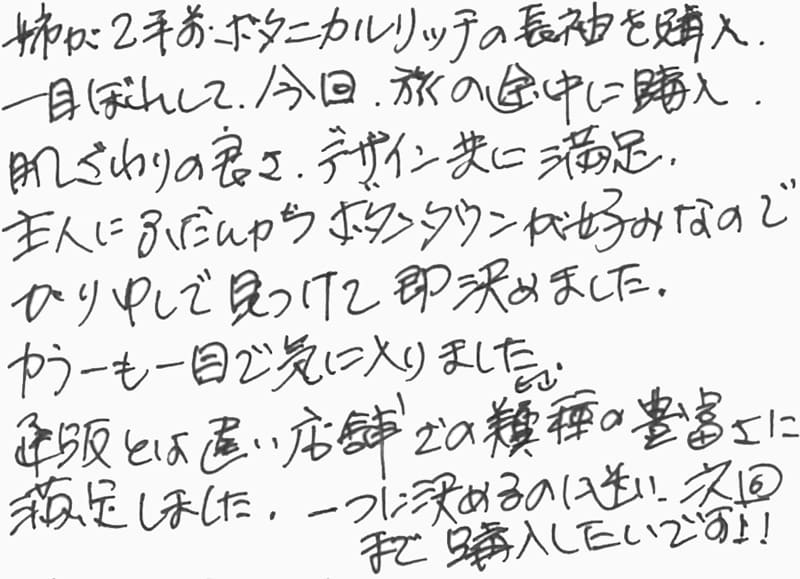 姉が2年前ボタニカルリッチの長袖を購入.
一目ぼれして.今回.旅の途中に購入.
肌ざわりの良さ.デザイン共に満足.
主人にふだんからボタンダウンが好みなので
かり中しで見つけて即決めました.
カラーも一目で気に入りました.
通販とは違い店舗での種の豊富さに
満足しました.一つに決めるのに迷い.次回
まで購入したいですよ!